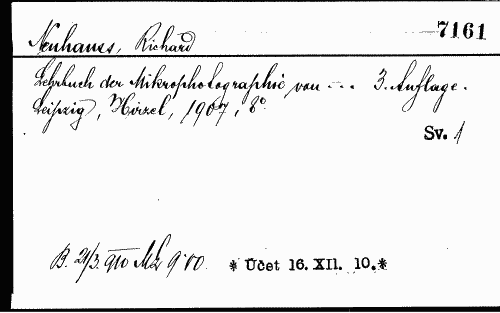 Neuhauss, Richard 7161
Lehrbuch der Mikrophotographie von --- 3. Auflage.
Leipzig, Hirzel, 1907, 8°
Sv. 1
B. 21/3. 910 Mk 9·00. * Účet 16. XII. 10.*